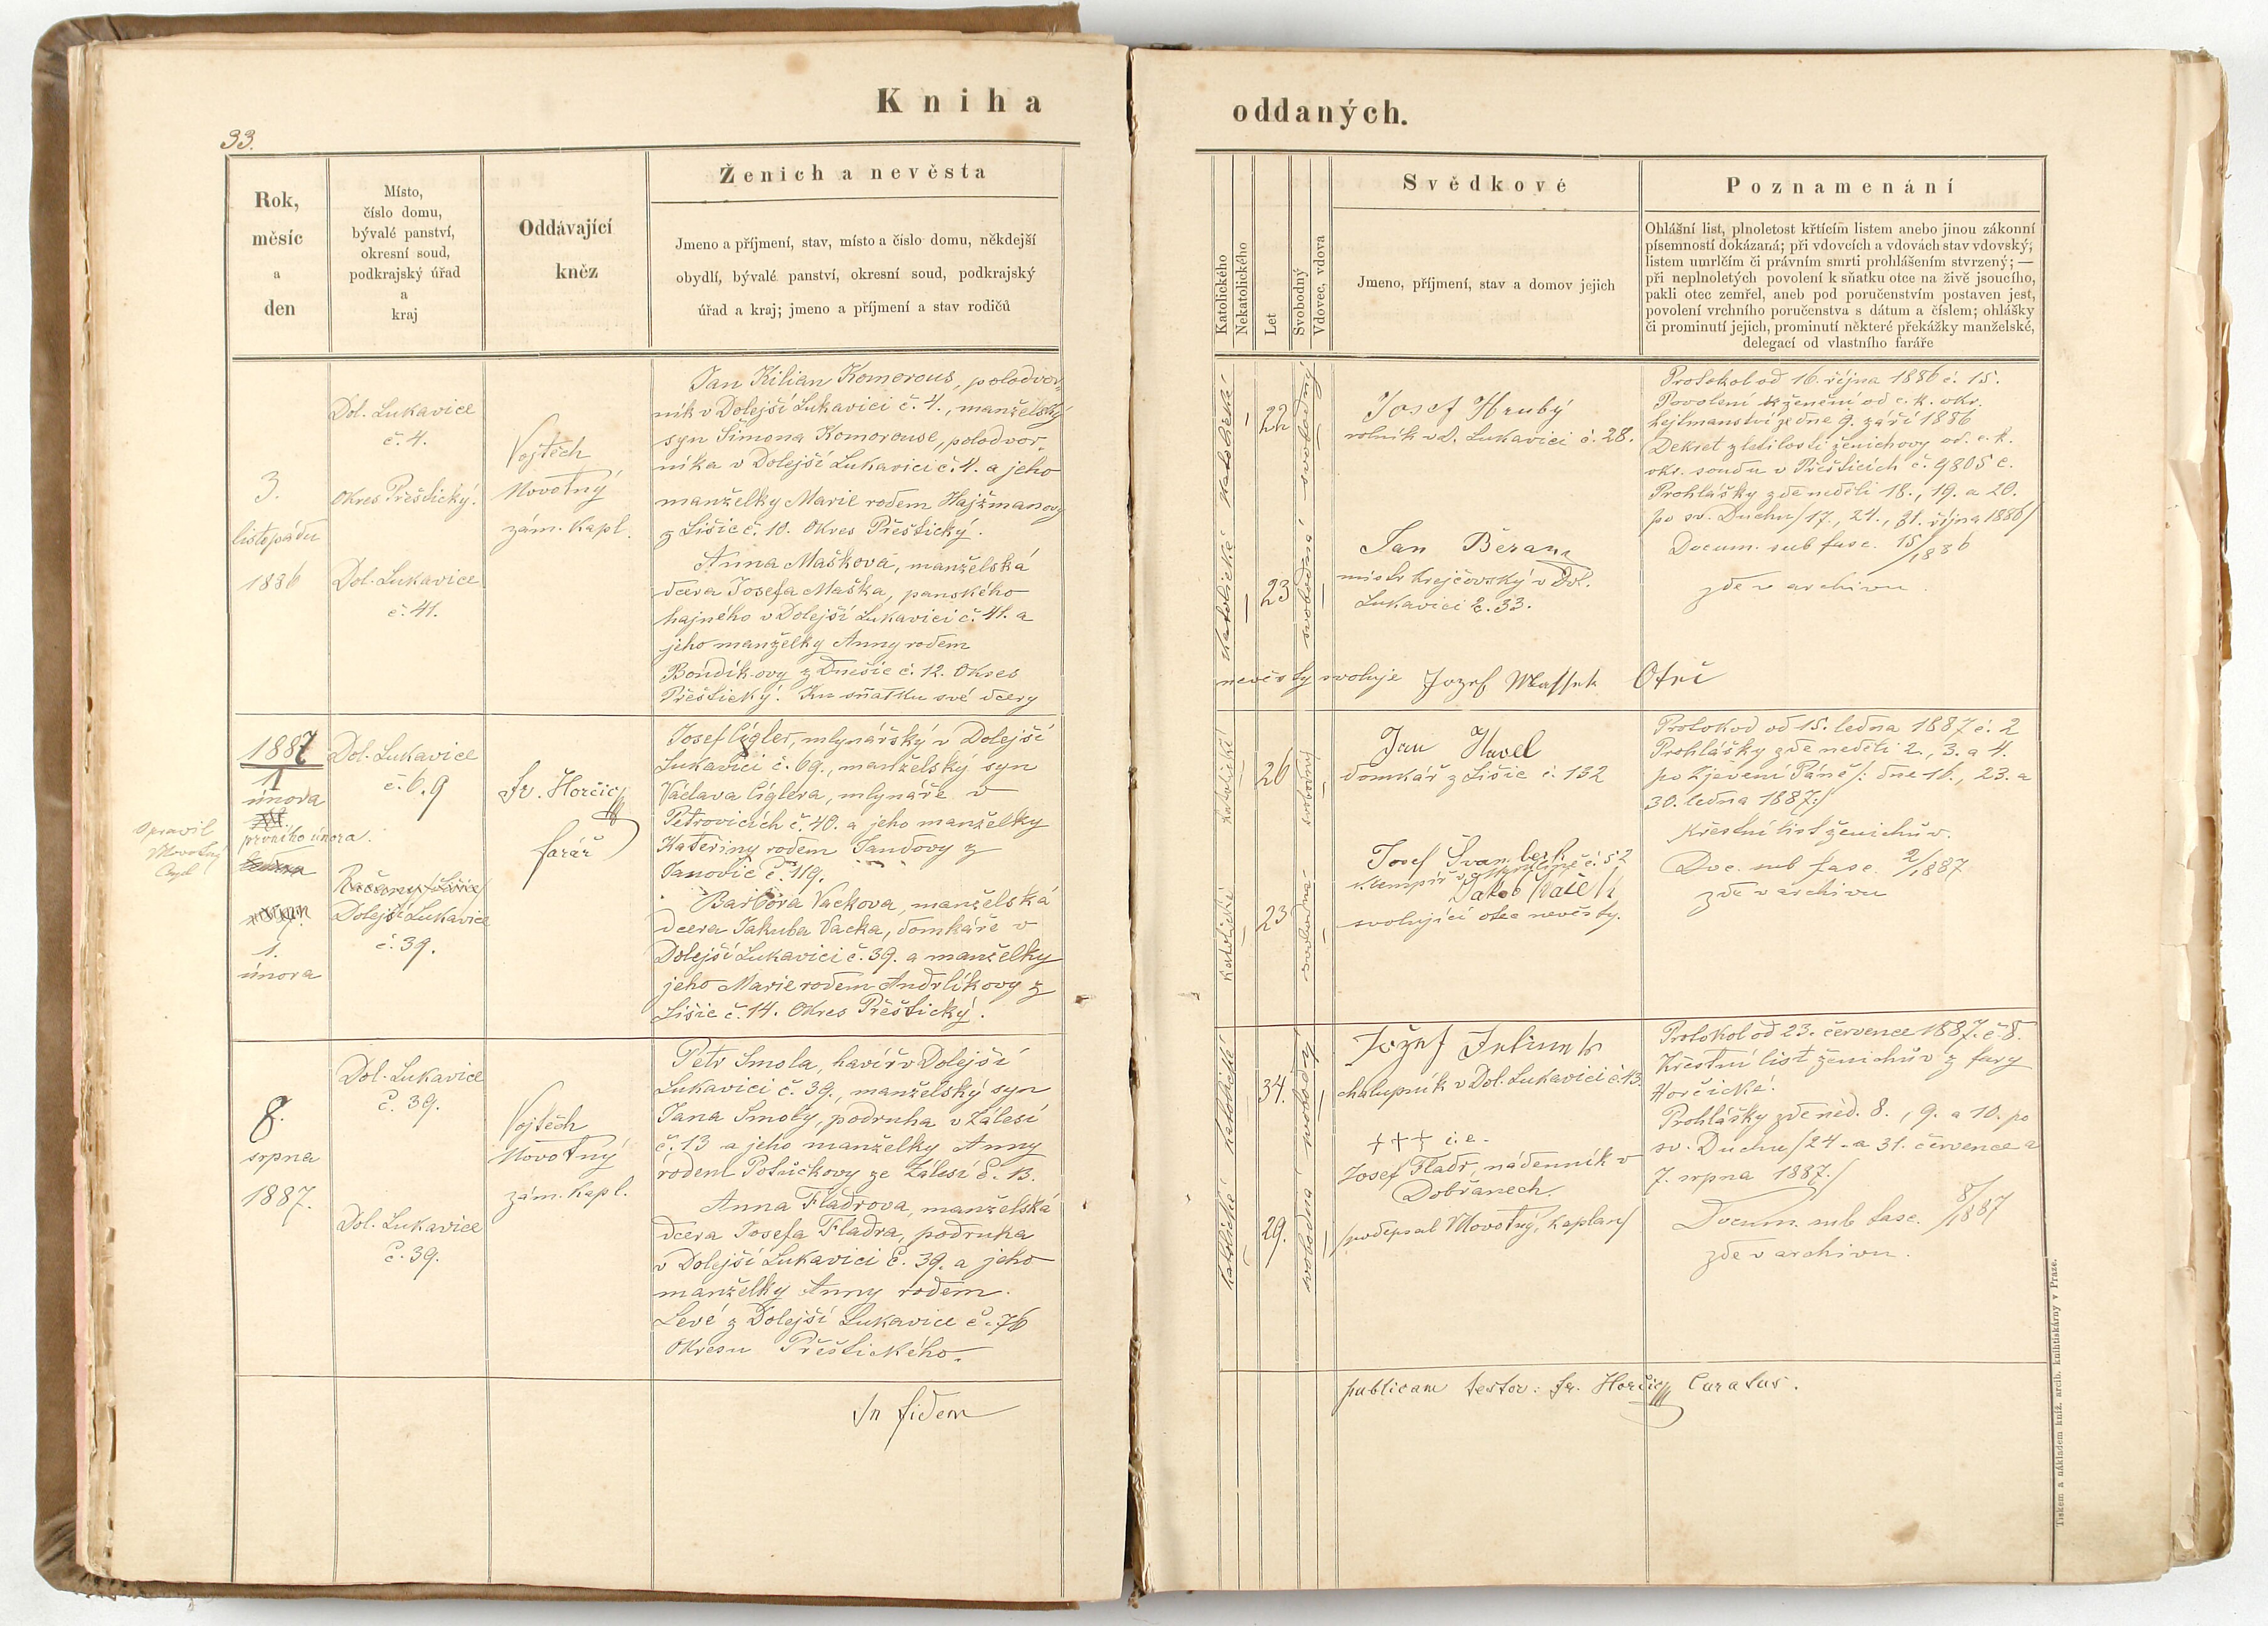 Kniha
33.
Rok,
měsíc
a
den
Místo,
číslo domu,
bývalé panství,
okresní soud,
podkrajský úřad
a
kraj
Oddávající
kněz
Ženich a nevěsta
Jmeno a příjmení, stav, místo a čislo domu, někdejší
obydlí, bývalé panství, okresní soud, podkrajský
úřad a kraj; jmeno a příjmení a stav rodičů
3.
listopádu
1886
Dol. Lukavice
č. 4.
Okres Přeštický.
Dol. Lukavice
č. 41.
Vojtěch
Novotný
zám. kapl.
Jan Kilian Komorous, polodvor-
ník v Dolejší Lukavici č. 4., manželský
syn Šimona Komorouse, polodvor-
níka v Dolejší Lukavici č. 4. a jeho
manželky Marie rodem Hajžmanovy
z Lišic č. 10. Okres Přeštický.
Anna Mašková, manželská
dcera Josefa Maška, panského
hajného v Dolejší Lukavici č. 41. a
jeho manželky Anny rodem
z Dnešic č. 12. Okres
Přeštický. Ku sňatku své dcery
1887
1
února
prvního února.
1.
února
Opravil
Novotný
Dol. Lukavice
č. 69
Dolejší Lukavice
č. 39.
Fr. Horčic
farář
Josef Cígler, mlynářský v Dolejší
Lukavici č. 69., manželský syn
Václava Cíglera, mlynáře v
Petrovicích č. 40. a jeho manželky
Kateřiny rodem Jandovy z
Janovic č. 119.
Barbora Vackova, manželská
dcera Jakuba Vacka, domkáře v
Dolejší Lukavici č. 39. a manželky
jeho Marie rodem Andrlíkovy z
Lišic č. 14. Okres Přeštický.
8.
srpna
1887.
Dol. Lukavice
č. 39.
Dol. Lukavice
č. 39.
Vojtěch
Novotný
zám. kapl.
Petr Smola, havíř v Dolejší
Lukavici č. 39., manželský syn
Jana Smoly, podruha v Zálesí
č. 13 a jeho manželky Anny
rodem Potůčkovy ze Zálesí č. 13.
Anna Fladrova, manželská
dcera Josefa Fladra, podruha
v Dolejší Lukavici č. 39. a jeho
manželky Anny rodem
Levé z Dolejší Lukavice č. 76
Okresu Přeštického.
In fidem
oddaných.
Katolického
Nekatolického
Let
Svobodný
Vdovec, vdova
Svědkové
Jmeno, příjmení, stav a domov jejich
Poznamenání
Ohlášní list, plnoletost křtícím listem anebo jinou zákonní
písemností dokázaná; při vdovcích a vdovách stav vdovský,
listem umrlčím či právním smrti prohlášením stvrzený; —
při neplnoletých povolení k sňatku otce na živě jsoucího,
pakli otec zemřel, aneb pod poručenstvím postaven jest,
povolení vrchního poručenstva s dátum a číslem; ohlášky
či prominutí jejich, prominutí některé překážky manželské,
delegací od vlastního faráře
katolické
22
svobodný
Josef Hrubý
rolník v D. Lukavici č. 28.
Protokol od 16. října 1886 č. 15.
Povolení k ženění od c. k. okr.
hejtmanství ze dne 9. září 1886
Dekret zletilosti ženichovy od c. k.
okr. soudu v Přešticích č. 9805 c.
Prohlášky zde neděli 18., 19. a 20.
po sv. Duchu /17., 24., 31. října 1886/
katolické
23
svobodná
Jan Beran
mistr krejčovský v Dol.
Lukavici č. 33.
Docum. sub fasc. 15/1886
zde v archivu.
nevěsty svoluje Jozef Massek Otec
katolické
26
svobodný
Jan Havel
domkář z Lišic č. 132
Protokod od 15. ledna 1887 č. 2
Prohlášky zde neděli 2., 3. a 4.
po Zjevení Páně /: dne 16., 23. a
30. ledna 1887:/
křestní list ženichův.
katolické
23
svobodná
Josef
klempíř v č. 52
Jakob Vacek
svolující otec nevěsty.
Doc. sub fasc. 2/1887
zde v archivu
katolické
34.
svobodný
Jožef Jelinek
chalupník v Dol. Lukavici č. 43.
Protokol od 23. července 1887. č 8.
Křestní list ženichův z fary
Horčické.
Prohlášky zde něd. 8., 9. a 10. po
sv. Duchu /24. a 31. července a
7. srpna 1887./
katolické
29.
svobodná
+++ i. e.
Josef Fladr, nádenník v
Dobřanech.
/podepsal Novotný, kaplan/
Docum. sub fasc. 8/1887
zde v archivu.
publicam testor: Fr. Horčic Curatus.
Tiskem a nákladem kníž. arcib. knihtiskárny v Praze.